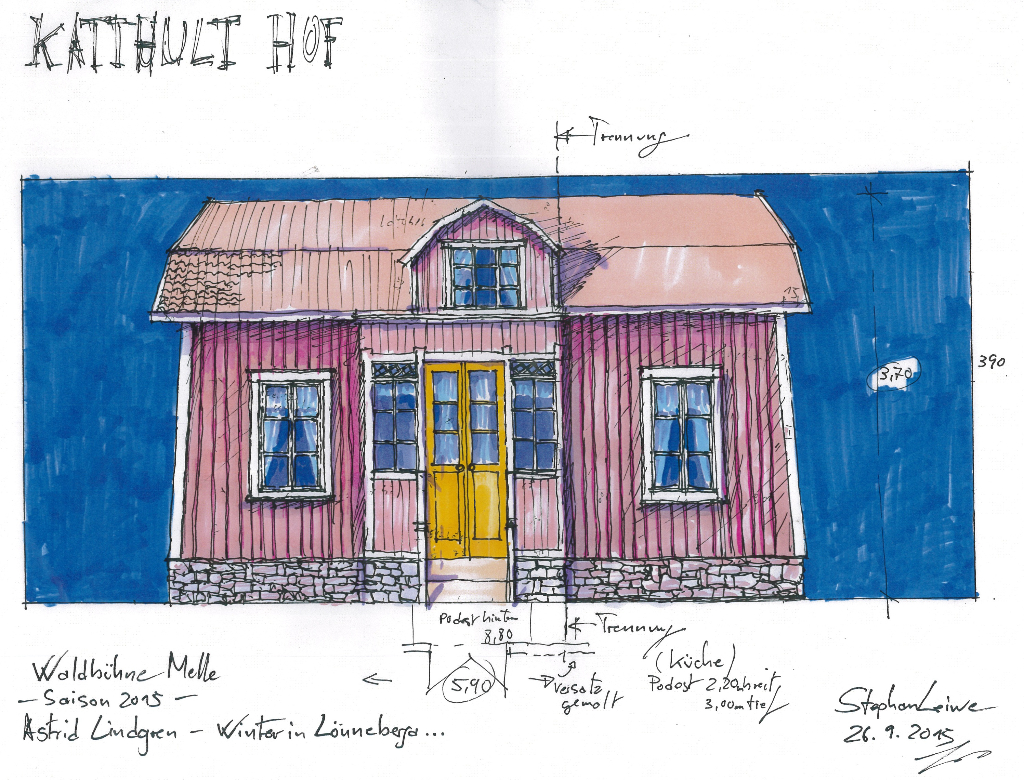 KATTHULT HOF
Trennung
390
3,70
15
Podest hinten
8,80
Trennung
5,90
Versatz
gemalt
(Küche)
Podest 2,20m breit
3,00m tief
Waldbühne Melle
- Saison 2015 -
Astrid Lindgren - Winter in Lönneberga...
Stephan Leiwe
26.9.2015